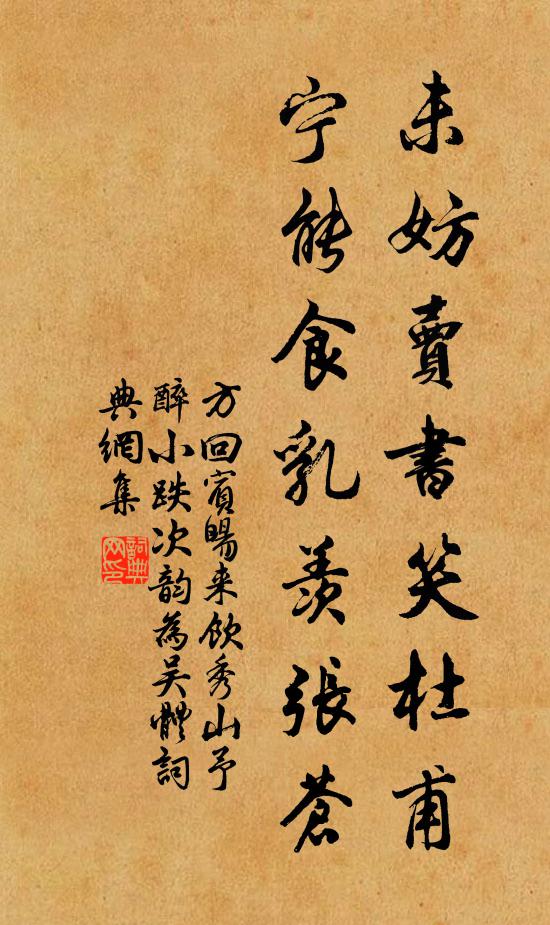 未妨賣書笑杜甫
宁能食乳羨張蒼
方回賓暘来飲秀山予
醉小跌次韵為吴體詞
典網集
詞典
网印